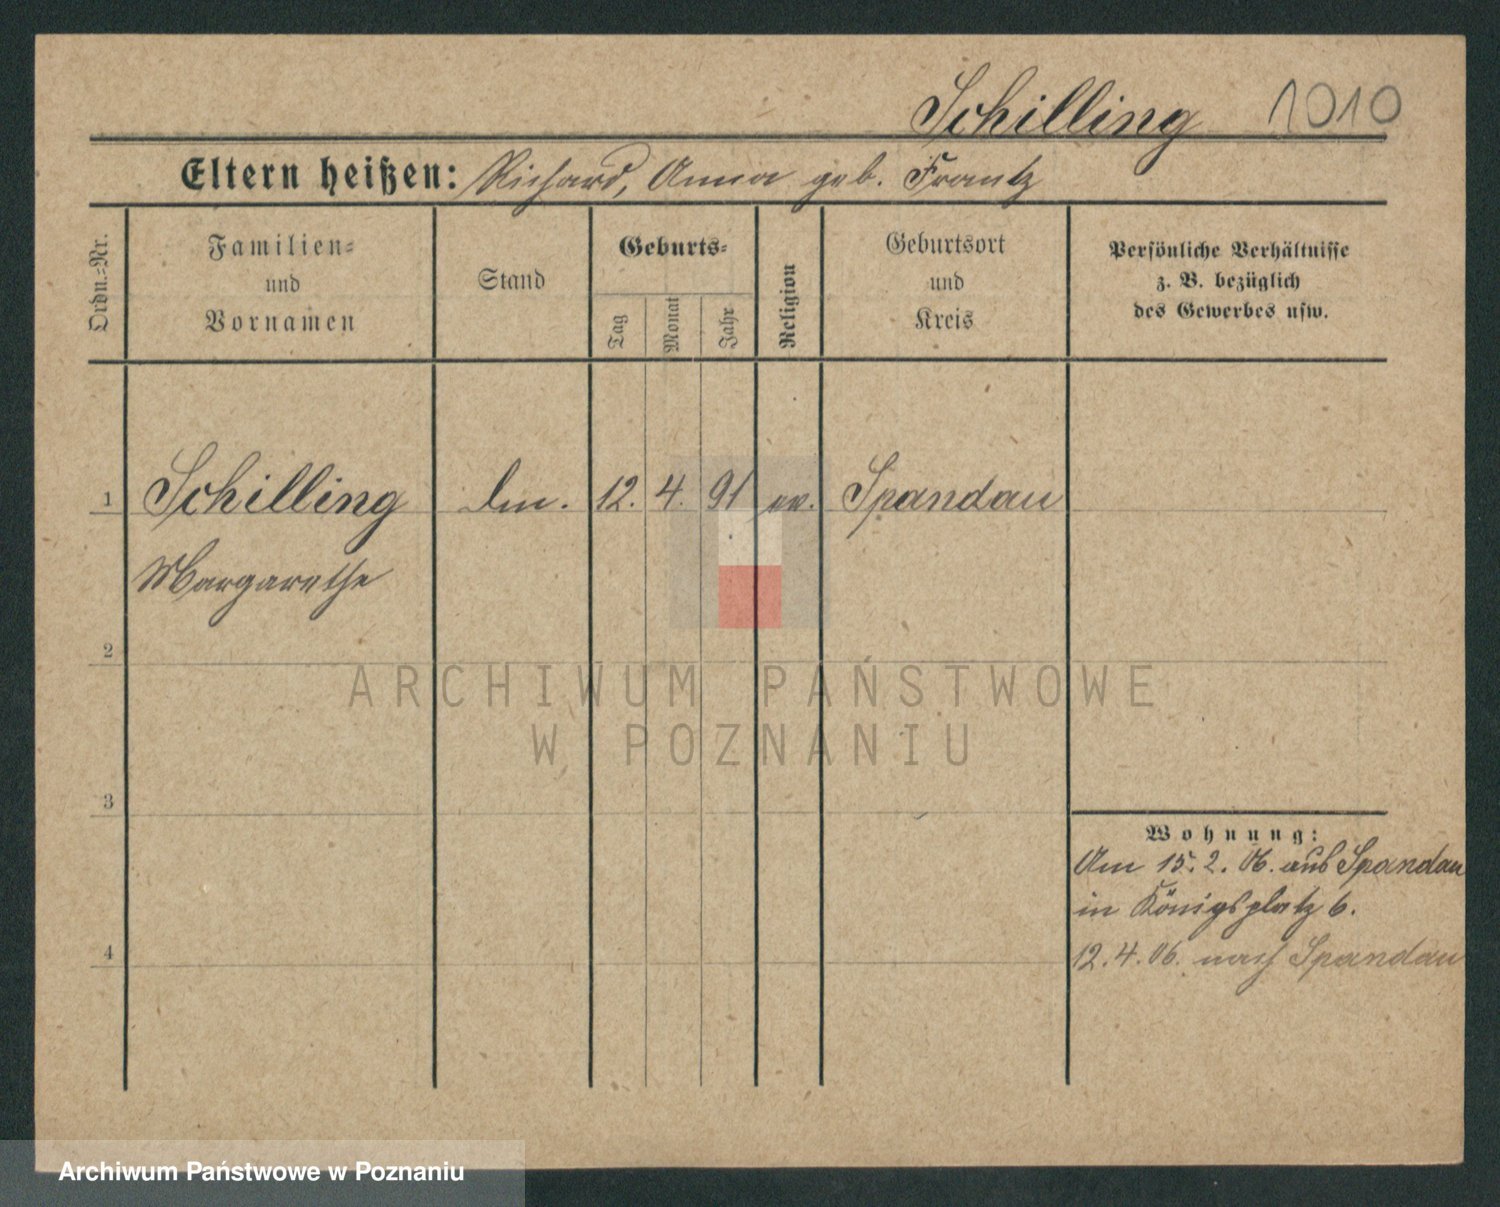 Schilling 1010
Eltern heißen: Richard, Anna geb. Frantz
Ordn.=Nr.
Familien=
und
Vornamen
Stand
Geburts=
Tag
Monat
Jahr
Religion
Geburtsort
und
Kreis
Persönliche Verhältnisse
z. B. bezüglich
des Gewerbes usw.
1 Schilling 12. 4. 91 ev. Spandau
Margarethe
2
ARCHIWUM PAŃSTWOWE
W POZNANIU
3
Wohnung:
Am 15. 2. 06. aus Spandau
in Königsplatz 6.
4
12. 4. 06. nach Spandau
Archiwum Państwowe w Poznaniu